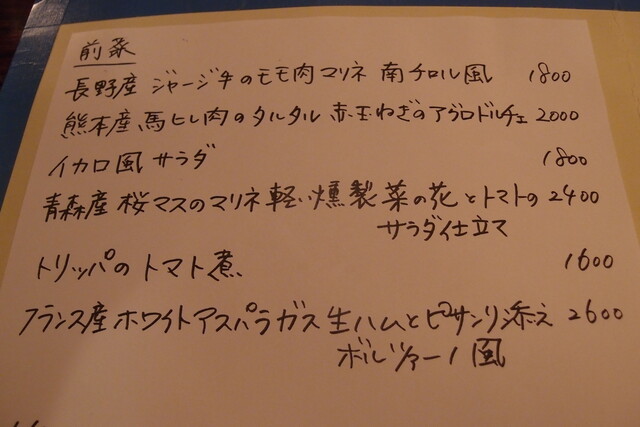 前菜
長野産 ジャージ牛のモモ肉マリネ 南チロル風 1800
熊本産 馬ヒレ肉のタルタル 赤玉ねぎのアグロドルチェ 2000
イカロ風サラダ 1800
青森産 桜マスのマリネ 軽い燻製 菜の花とトマトの 2400
サラダ仕立て
トリッパのトマト煮 1600
フランス産ホワイトアスパラガス 生ハムとピサンリ添え 2600
ボルツァーノ風